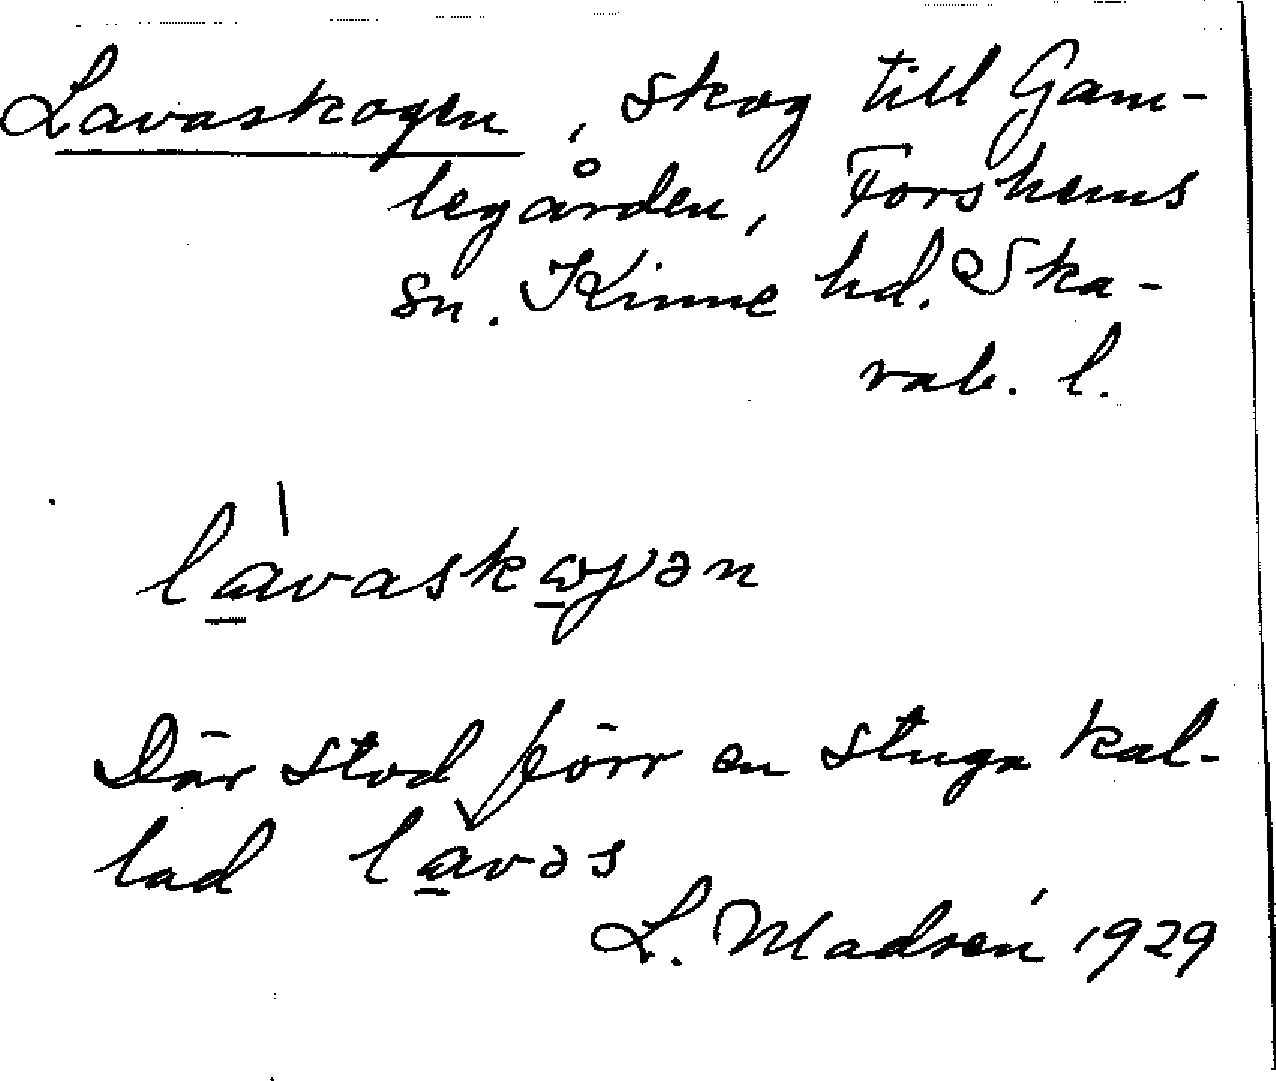 Lavaskogen, skog till Gam-
legården, Forshems
sn. Kinne hd. Ska-
rab. l.
là̱vasko̱γən
Där stod förr en stuga kal-
lad la̱vəs
L. Madsén 1929